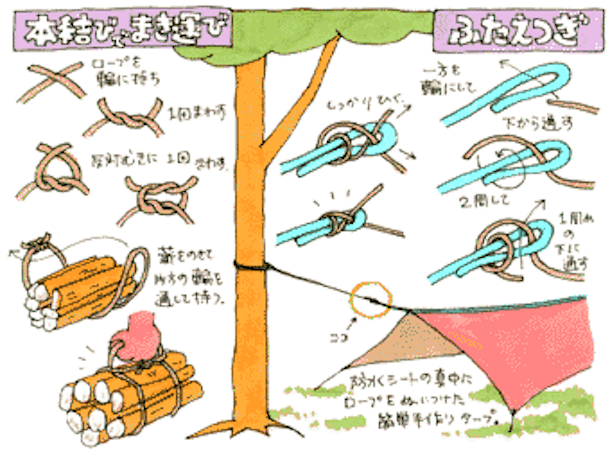 本結びでまき運び
ロープを
輪に持ち
1回まわす
反対むきに1回まわす.
薪をのせて
片方の輪を
通して持つ.
ふたえつぎ
一方を
輪にして
下から通す
2周して
1周めの
下に
通す
しっかりひく.
ココ
防水シートの真中に
ロープをぬいつけた
簡単手作りタープ.